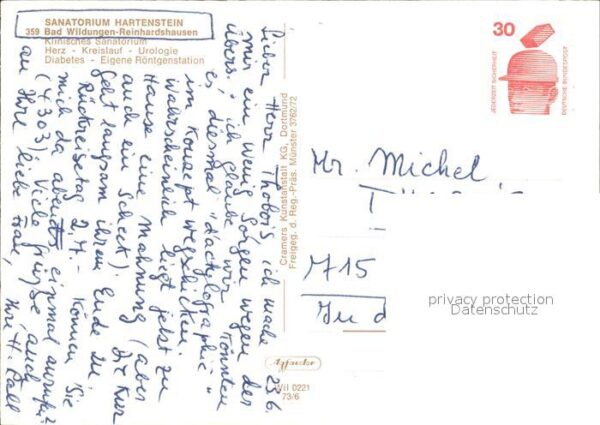 SANATORIUM HARTENSTEIN
359 Bad Wildungen-Reinhardshausen
Klinisches Sanatorium
Herz - Kreislauf - Urologie
Diabetes - Eigene Röntgenstation
23.6.
Lieber Herr Thobois, ich mache
mir ein wenig Sorgen wegen der
Übers.; ich glaube wir könnten
es diesmal "dactylographié"
im Konzept wegschicken.
Wahrscheinlich liegt jetzt zu
Hause eine Mahnung (aber
auch ein Scheck). Die Kur
geht langsam ihrem Ende zu.
Rückreisetag 2.7. - Können Sie
mich da abends einmal anrufen?
(4303) Viele Grüße auch
an Ihre liebe Frau, Ihre H. Call
Cramers Kunstanstalt KG, Dortmund
Freigeg. d. Reg.-Präs. Münster 3762/72
Wil 0221
73/6
30
JEDERZEIT SICHERHEIT
DEUTSCHE BUNDESPOST
Mr. Michel
T
M 715
privacy protection
Datenschutz